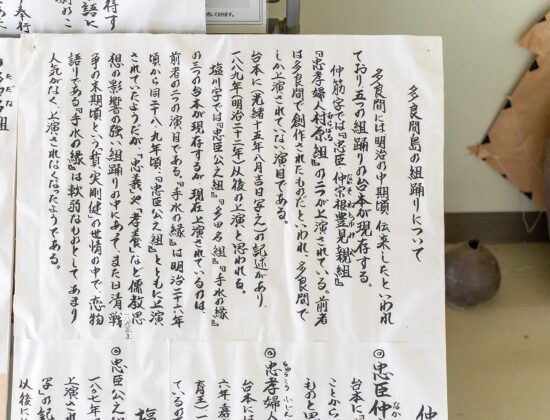 多良間島の組踊りについて
多良間には明治の中期頃伝来したといわれ
ており五つの組踊りの台本が現存する。
仲筋字では『忠臣仲宗根豊見親組』
『忠孝婦人村原組』の二つが上演されている。前者
は多良間で創作されたものだといわれ、多良間で
しか上演されていない演目である。
台本に(光緒十五年八月吉日写之)の記述があり、
一八八九年(明治二十二年)以後の上演と思われる。
塩川字では『忠臣公之組』『多田名組』『手水の縁』
の三つの台本が現存するが現在上演されているのは、
前者の二つの演目である。『手水の縁』は明治二十六年
頃から同二十八九年頃、『忠臣公之組』とともに上演
されていたようだが、「忠義」や「孝養」など儒教思
想の影響の強い組踊りの中にあて、また日清戦
争の末期頃という「質実剛健」の世情の中で、恋物
語りである『手水の縁』は軟弱なものとしてあまり
人気がなく、上演されなくなったようである。
仲
◎忠臣仲
台本に
ことから
ものと思
◎忠孝婦人
台本には
六年嘉
育王)
ているの
塩
◎忠臣公之
一八〇七年
上演さ
写の記
以後に